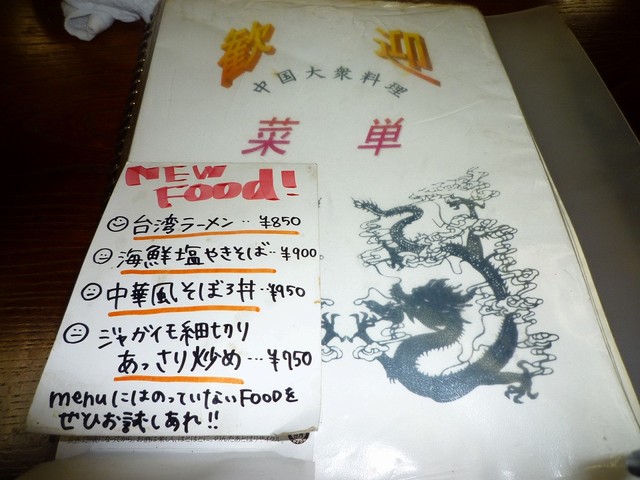 歓迎
中国大衆料理
菜単
NEW
FOOD!
台湾ラーメン‥¥850
海鮮塩やきそば‥¥900
中華風そぼろ丼‥¥950
ジャガイモ細切り
あっさり炒め…¥750
menuにはのっていないFOODを
ぜひお試しあれ!!